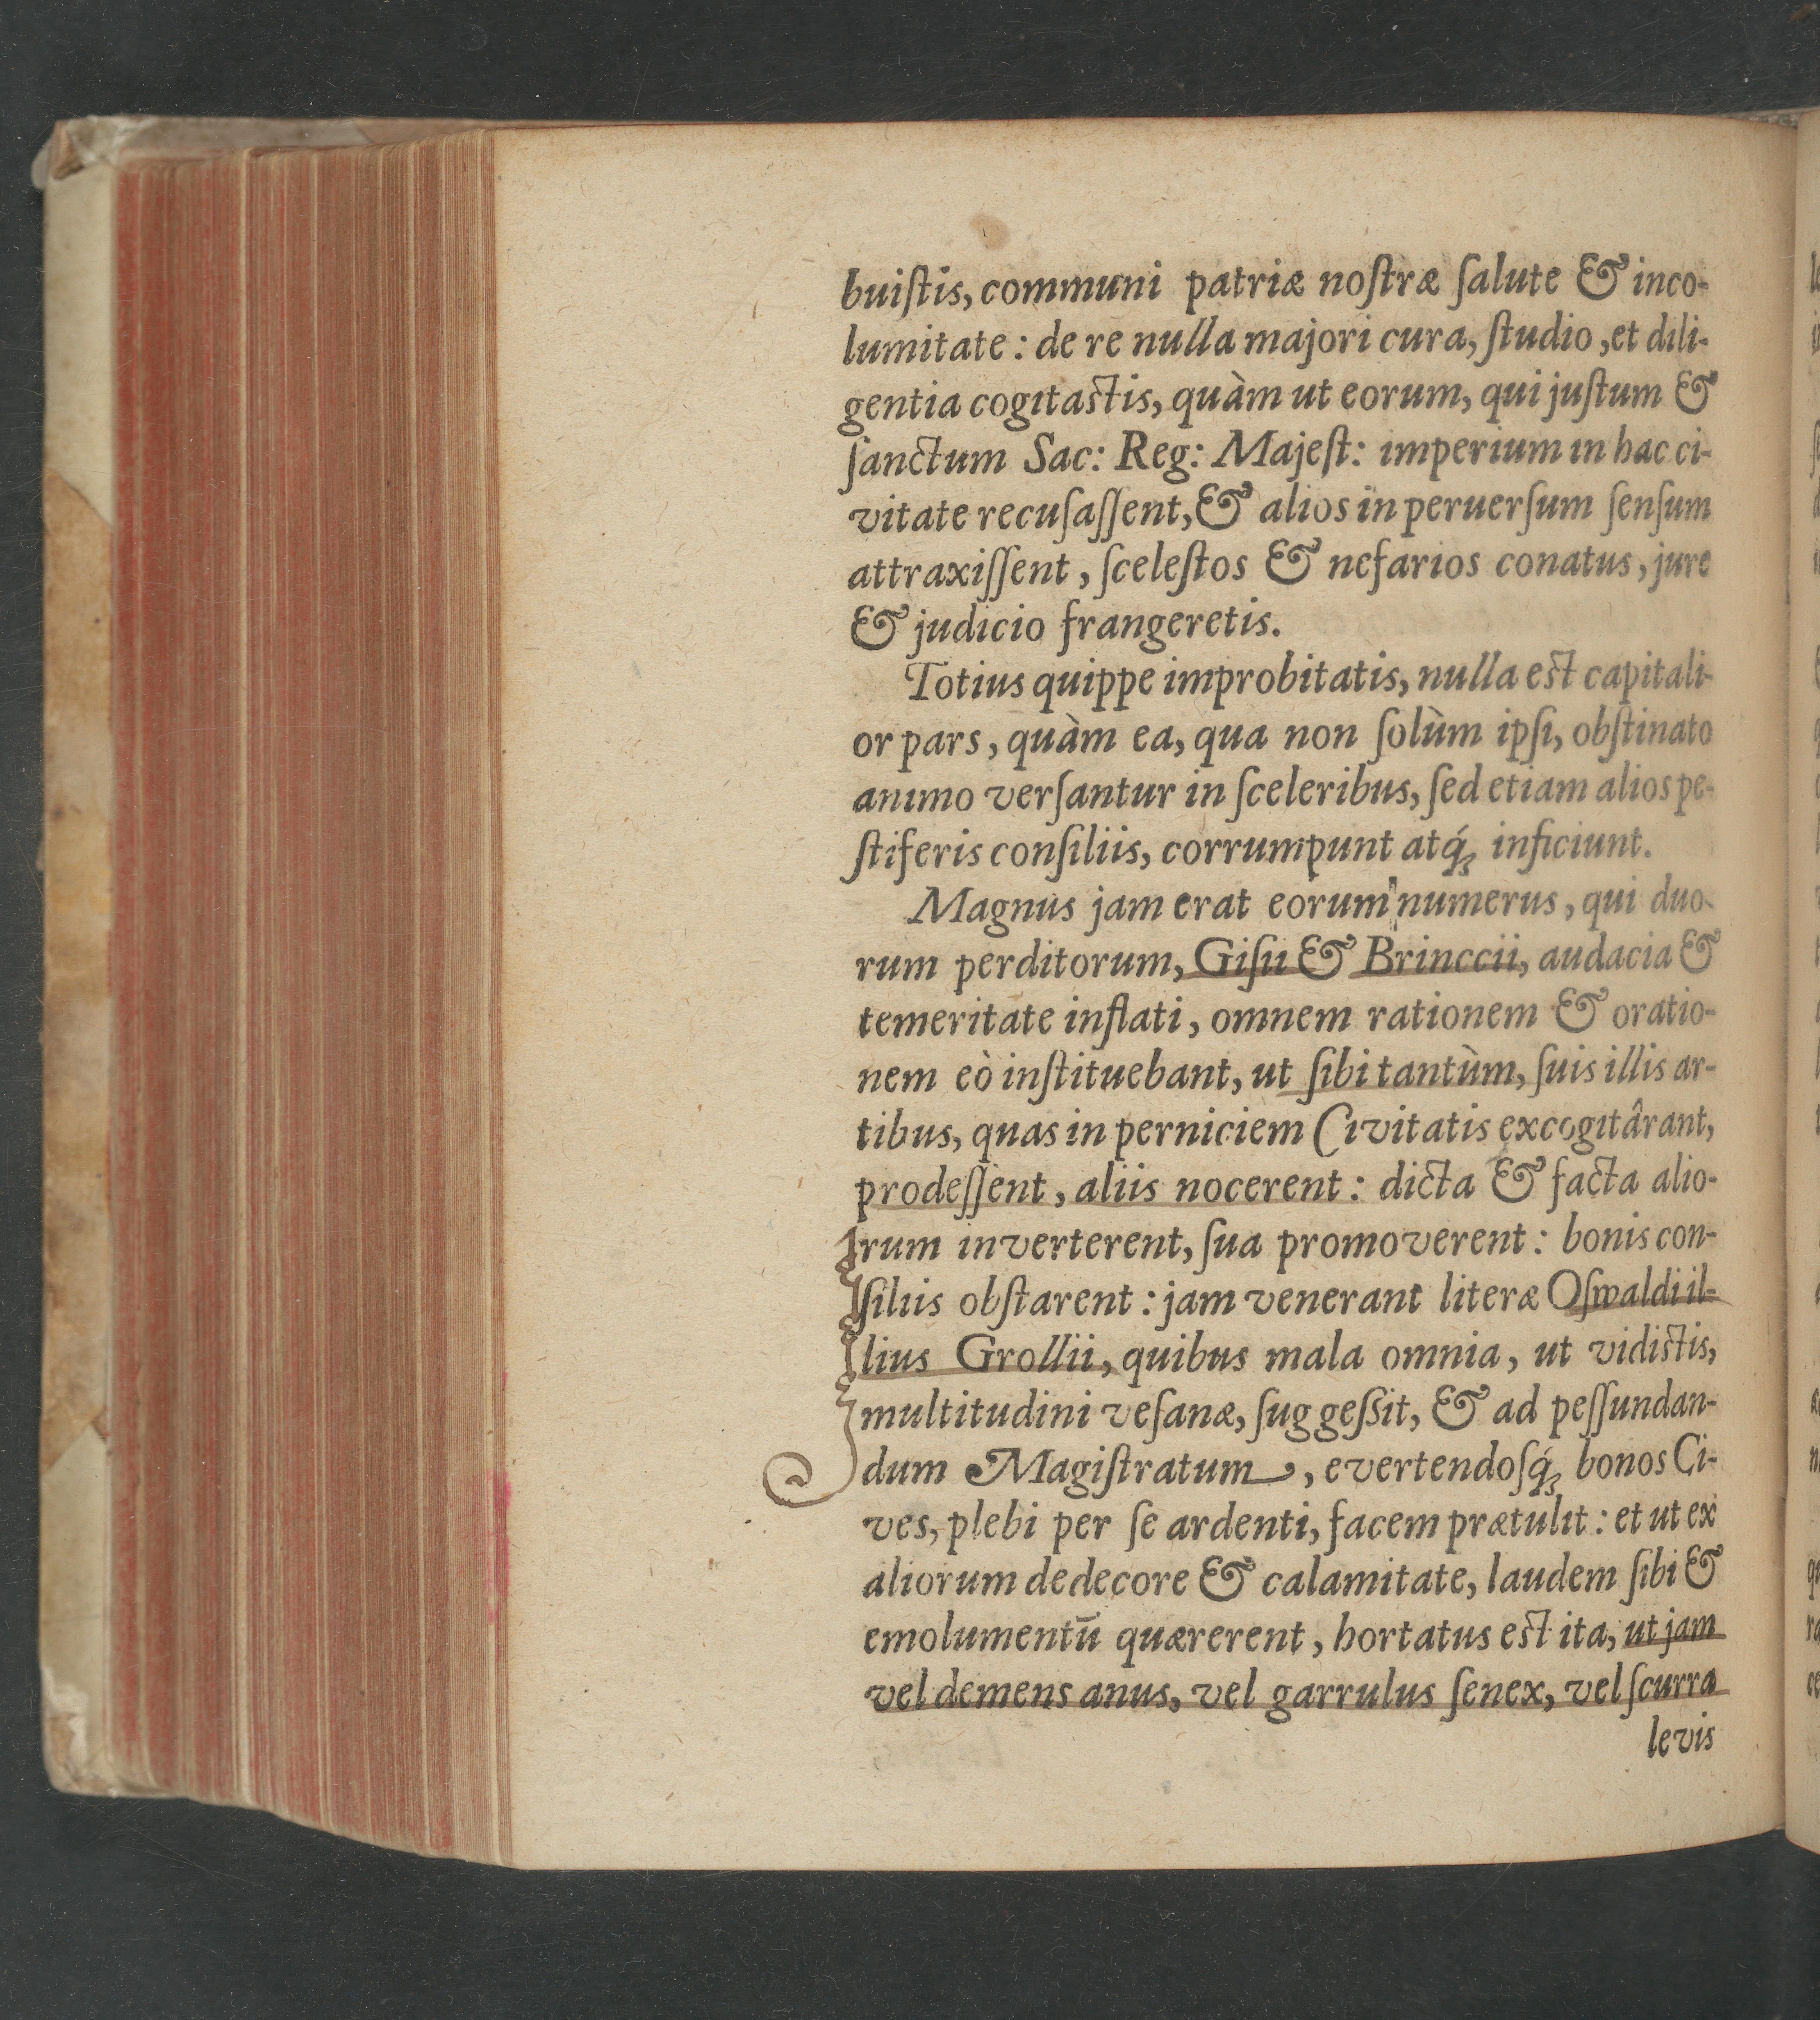 buiſtis, communi patriæ noſtræ ſalute & inco-
lumitate: de re nulla majori cura, ſtudio, et dili-
gentia cogitaſtis, quàm ut eorum, qui juſtum &
ſanctum Sac: Reg: Majeſt: imperium in hac ci-
vitate recuſaſſent, & alios in peruerſum ſenſum
attraxiſſent, ſceleſtos & nefarios conatus, jure
& judicio frangeretis.
Totius quippe improbitatis, nulla eſt capitali-
or pars, quàm ea, qua non ſolùm ipſi, obſtinato
animo verſantur in ſceleribus, ſed etiam alios pe-
ſtiferis conſiliis, corrumpunt atq́ꝫ inficiunt.
Magnus jam erat eorum numerus, qui duo-
rum perditorum, Giſii & Brinccii, audacia &
temeritate inflati, omnem rationem & oratio-
nem eò inſtituebant, ut ſibi tantùm, ſuis illis ar-
tibus, quas in perniciem Civitatis excogitârant,
prodeſſent, aliis nocerent: dicta & facta alio-
rum inverterent, ſua promoverent: bonis con-
ſiliis obſtarent: jam venerant literæ Oſwaldi il-
lius Grollii, quibus mala omnia, ut vidiſtis,
multitudini veſanæ, ſuggeſſit, & ad peſſundan-
dum Magiſtratum, evertendoſq́ꝫ bonos Ci-
ves, plebi per ſe ardenti, facem prætulit: et ut ex
aliorum dedecore & calamitate, laudem ſibi &
emolumentū quærerent, hortatus eſt ita, ut jam
vel demens anus, vel garrulus ſenex, vel ſcurra
levis